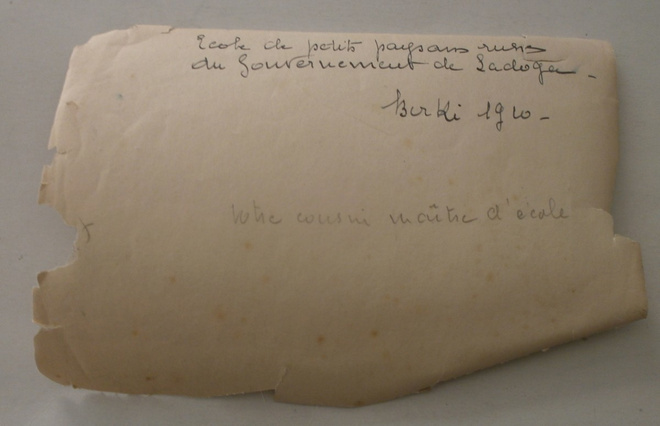 Ecole de petits paysans russes
du Gouvernement de Ladoga -
Berki 1910 -
Notre cousin maître d'école